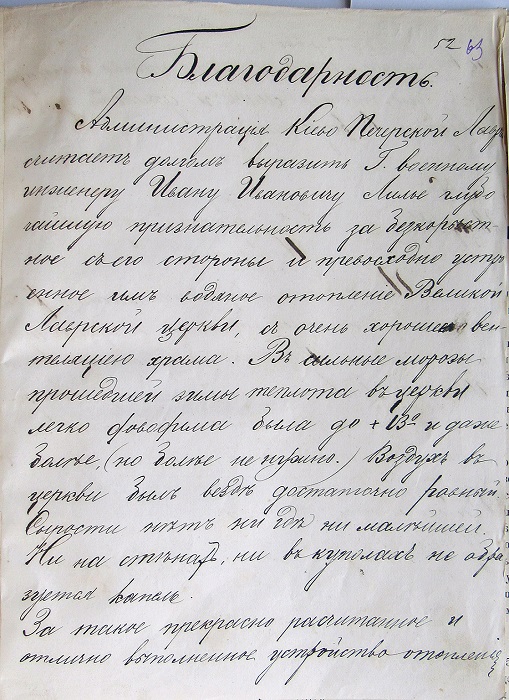 52 63
Благодарность.
Администрація Кіево Печерской Лавр
считаетъ долгомъ выразить Г. военному
инженеру Ивану Ивановичу Лилье глубо
чайшую признательность за безкорыст-
ное съ его стороны и превосходно устро
енное имъ водяное отопленіе Великой
Лаврской церкви, съ очень хорошею вен-
тиляціею храма. Въ сильные морозы
прошедшей зимы теплота въ церкви
легко была до + 13° и даже
болѣе, (но болѣе не нужно.) Воздухъ въ
церкви былъ вездѣ достаточно ровный.
Сырости нѣтъ ни гдѣ ни малѣйшей.
Ни на стѣнахъ, ни въ куполахъ не обра
зуется капель.
За такое прекрасно расчитанное и
отлично выполненное устройство отопленія